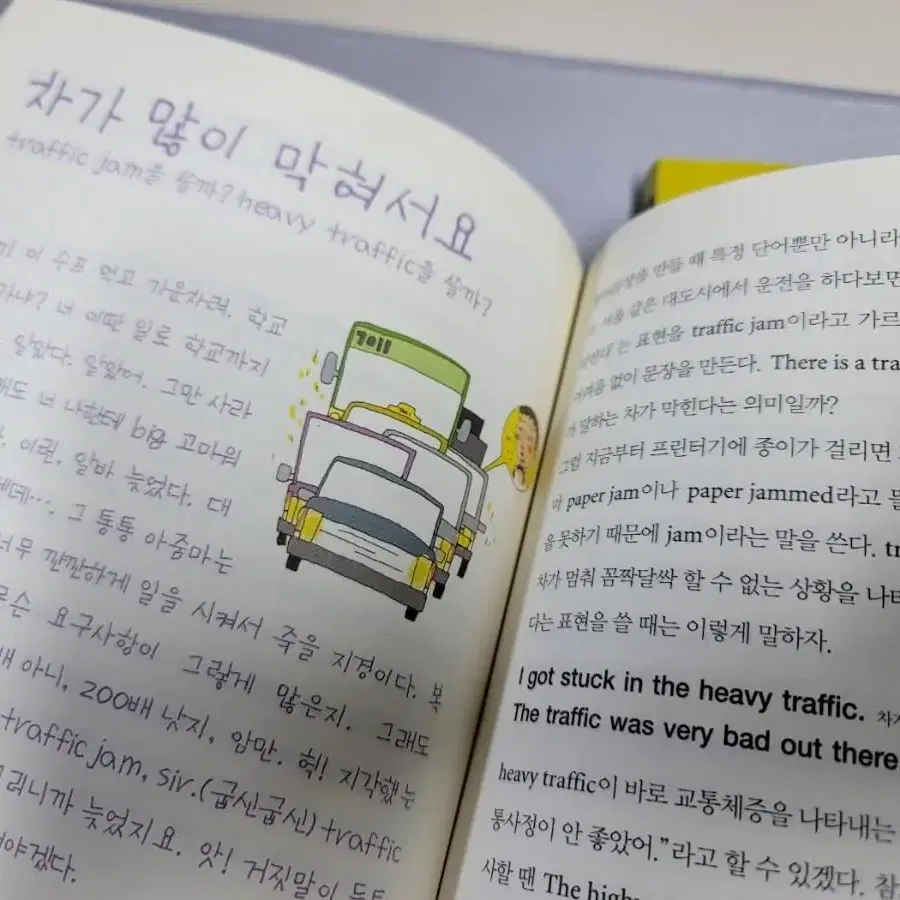 차가 많이 막혀서요
traffic jam을 쓸까? heavy traffic을 쓸까?
이 수프 먹고 가운차려. 학교
가니? 너 이딴 일로 학교까지
알았다. 알았어. 그만 사라
너 나한테 big 고마워
이런. 알바 늦었다. 대
그 통통 아줌마는
너무 깐깐하게 일을 시켜서 죽을 지경이다. 복
요구사항이 그렇게 많은지. 그래도
배 아니, 200배 낫지, 암만. 헉! 지각했는
traffic jam, sir.(굽신굽신) traffic
그러니까 늦었지요. 앗! 거짓말이
야겠다.
7011
만들 때 특정 단어뿐만 아니라
서울 같은 대도시에서 운전을 하다보면
는 표현을 traffic jam이라고 가르
어려움 없이 문장을 만든다. There is a tra
말하는 차가 막힌다는 의미일까?
그럼 지금부터 프린터기에 종이가 걸리면
paper jam이나 paper jammed라고
을 못하기 때문에 jam이라는 말을 쓴다. tr
차가 멈춰 꼼짝달싹 할 수 없는 상황을 나타
다는 표현을 쓸 때는 이렇게 말하자.
I got stuck in the heavy traffic. 차가
The traffic was very bad out there
heavy traffic이 바로 교통체증을 나타내는
통사정이 안 좋았어.”라고 할 수 있겠다. 참
사할 땐 The high